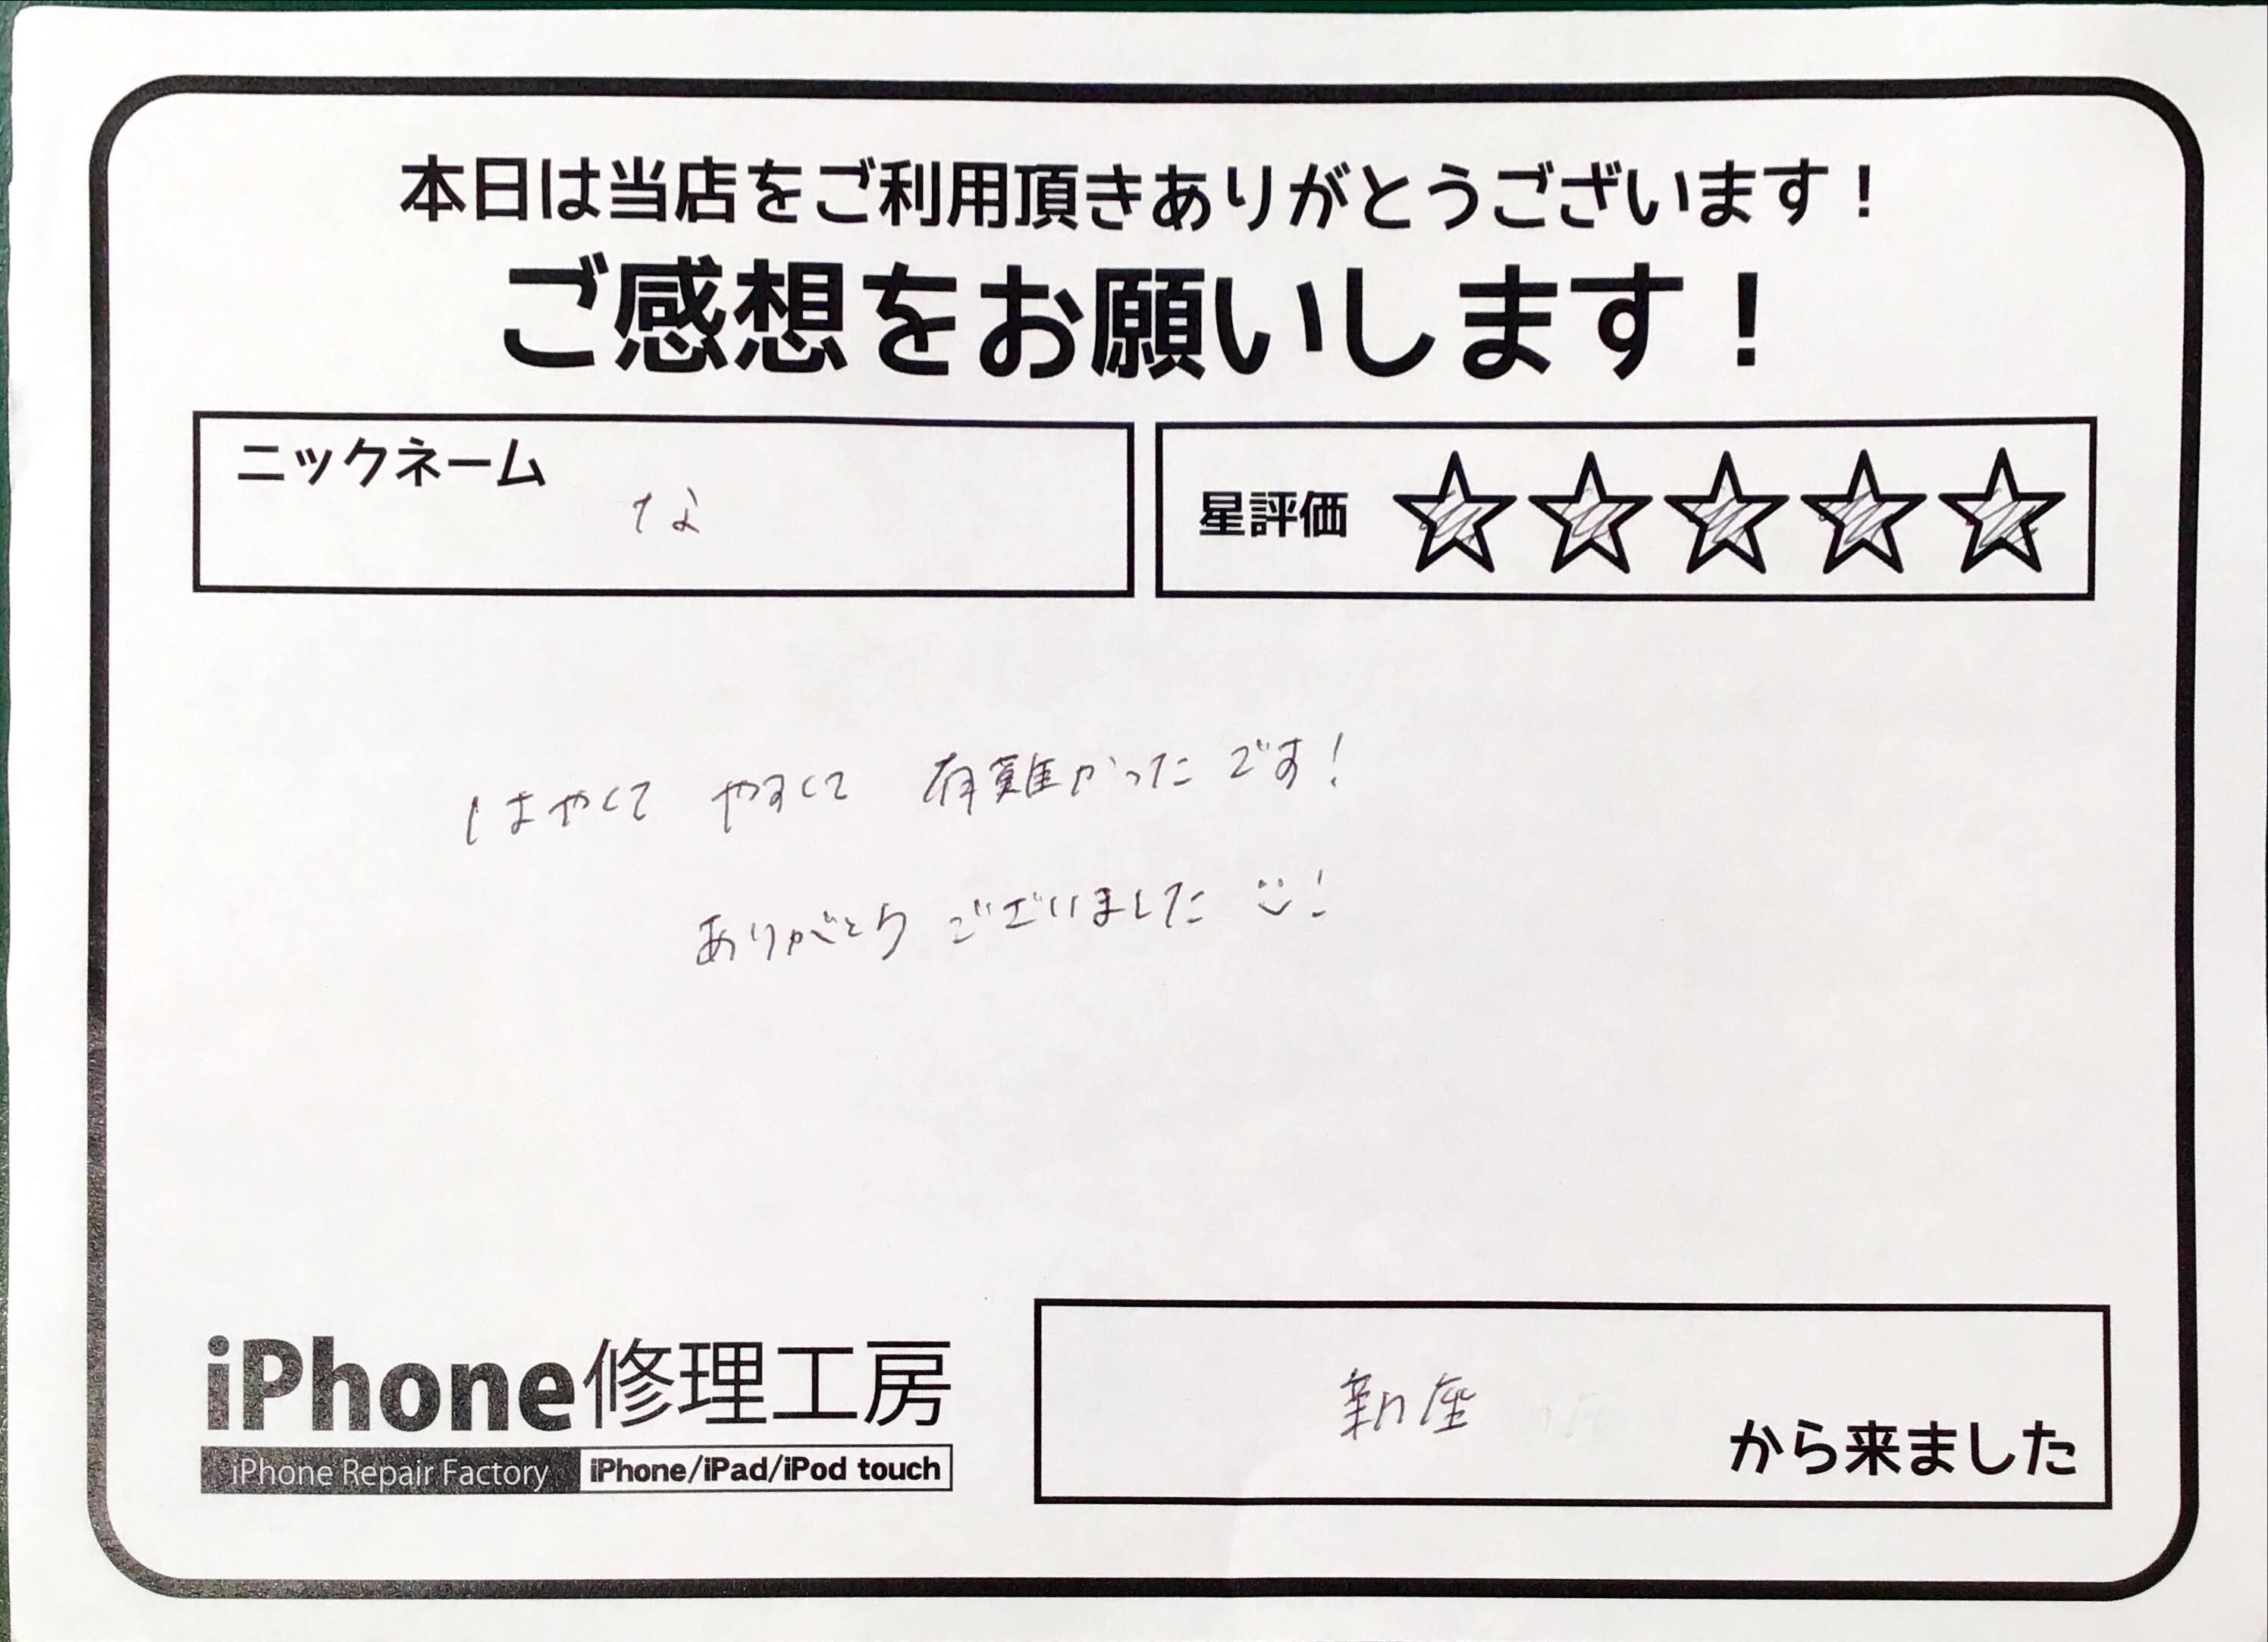 本日は当店をご利用頂きありがとうございます！
ご感想をお願いします！
ニックネーム
な
星評価 ☆☆☆☆☆
はやくて やすくて 有難かったです！
ありがとうございました !
iPhone修理工房
iPhone Repair Factory iPhone/iPad/iPod touch
新座
から来ました